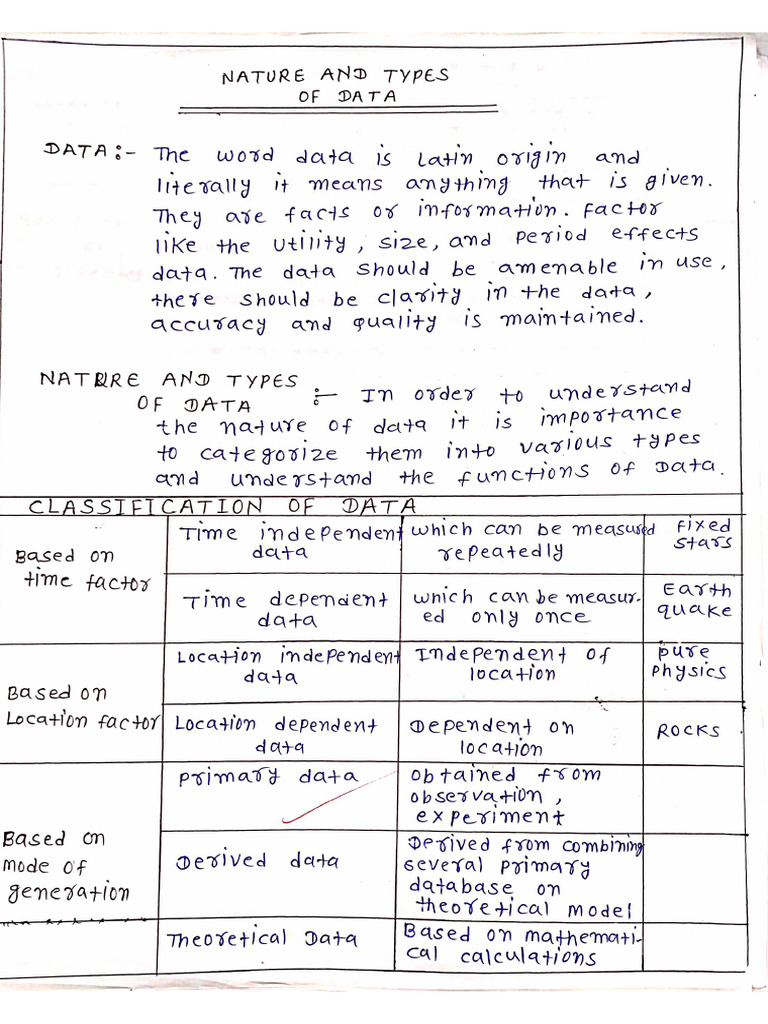 NATURE AND TYPES
OF DATA
DATA :- The word data is Latin origin and
literally it means anything that is given.
They are facts or information. Factor
like the utility, size, and period effects
data. The data should be amenable in use,
there should be clarity in the data,
accuracy and quality is maintained.
NATURE AND TYPES
OF DATA :- In order to understand
the nature of data it is importance
to categorize them into various types
and understand the functions of Data.
CLASSIFICATION OF DATA
Based on
time factor
Time independent
data
which can be measured
repeatedly
fixed
stars
Time dependent
data
which can be measur-
ed only once
Earth
quake
Based on
Location factor
Location independent
data
Independent of
location
pure
physics
Location dependent
data
Dependent on
location
ROCKS
Based on
mode of
generation
Primary data
obtained from
observation,
experiment
Derived data
Derived from combining
several primary
database on
theoretical model
Theoretical Data
Based on mathemati-
cal calculations